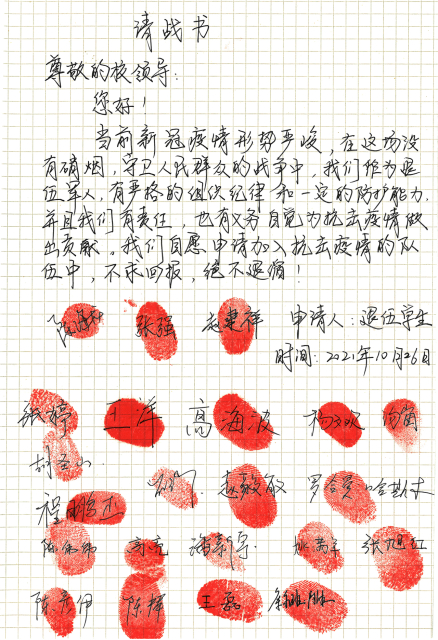 请战书
尊敬的校领导:
您好!
当前新冠疫情形势严峻,在这场没
有硝烟,守卫人民群众的战争中,我们作为退
伍军人,有严格的组织纪律和一定的防护能力,
并且我们有责任 也有义务自觉为抗击疫情做
出贡献。我们自愿申请加入抗击疫情的队
伍中,不求回报,绝不退缩!
张强 赵建祥 申请人:退伍学生
时间:2021年10月26日
张婷 王洋 高海波
赵毅敏
程鹏杰
陈亮 张旭红
陈彦伊 陈辉 王磊